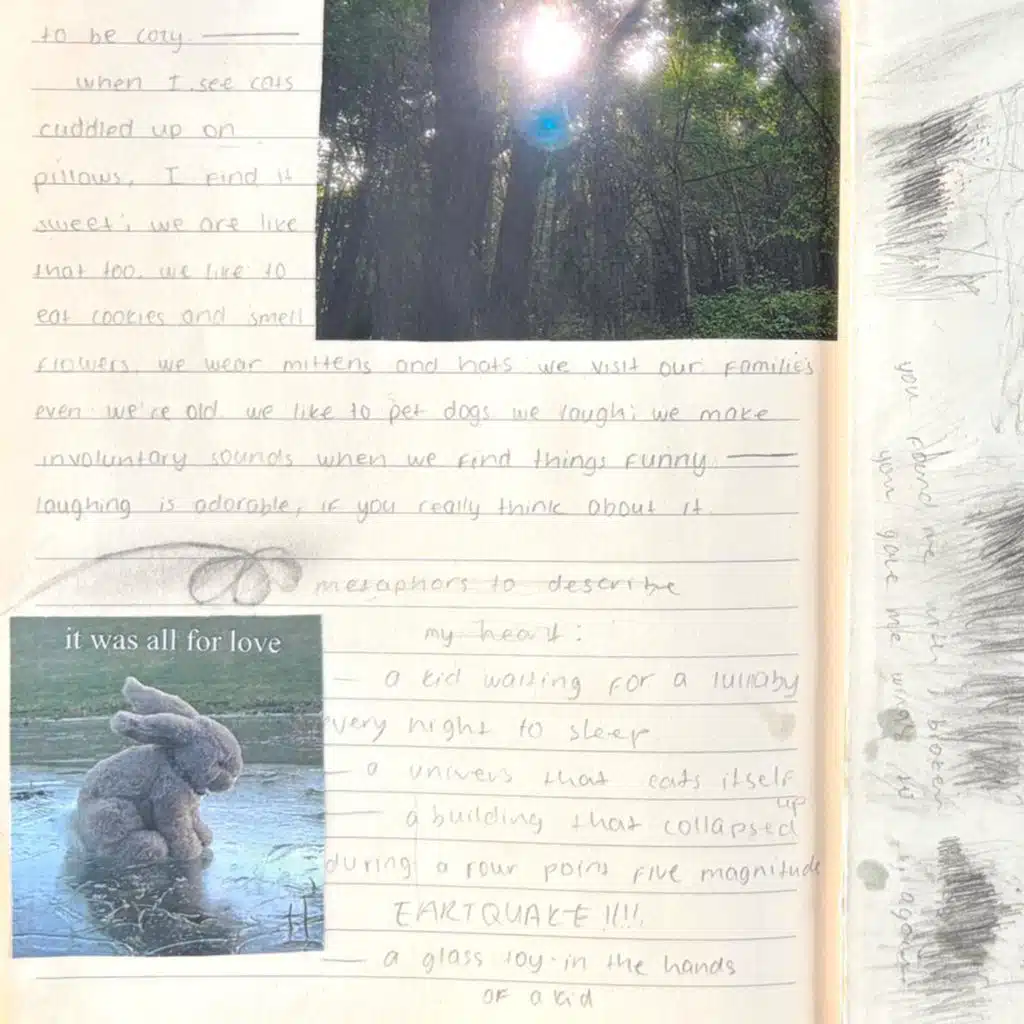 to be cozy ——
when I see cats
cuddled up on
pillows, I find it
sweet; we are like
that too. we like to
eat cookies and smell
flowers. we wear mittens and hats we visit our families
even we're old we like to pet dogs we laugh; we make
involuntary sounds when we find things funny ——
laughing is adorable, if you really think about it
metaphors to describe
my heart:
it was all for love
— a kid waiting for a lullaby
every night to sleep
— a univers that eats itself
up
— a building that collapsed
during a four point five magnitude
EARTQUAKE !!!!
— a glass toy in the hands
of a kid
you found me with broken
you gave me wings to